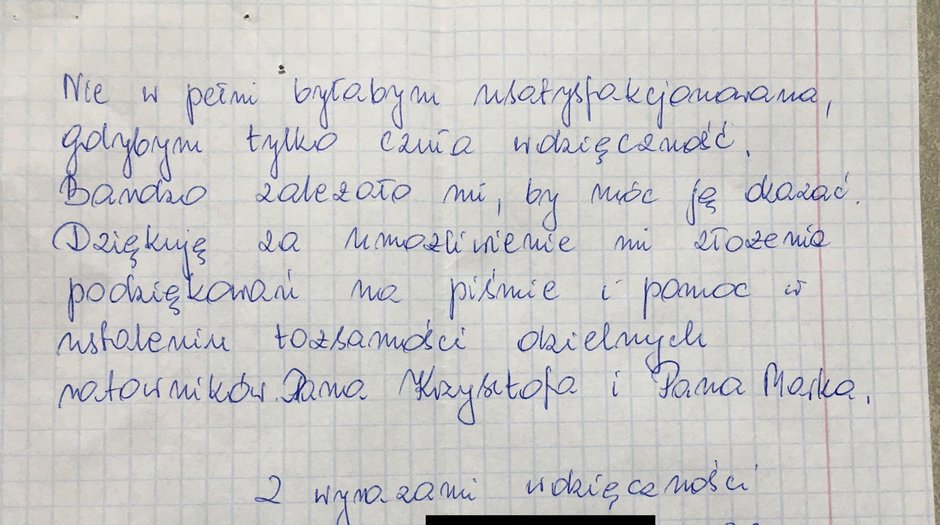 Nie w pełni byłabym usatysfakcjonowana,
gdybym tylko czuła wdzięczność.
Bardzo zależało mi, by móc ją okazać.
Dziękuję za umożliwienie mi złożenia
podziękowań na piśmie i pomoc w
ustaleniu tożsamości dzielnych
ratowników Pana Krzysztofa i Pana Marka.
Z wyrazami wdzięczności